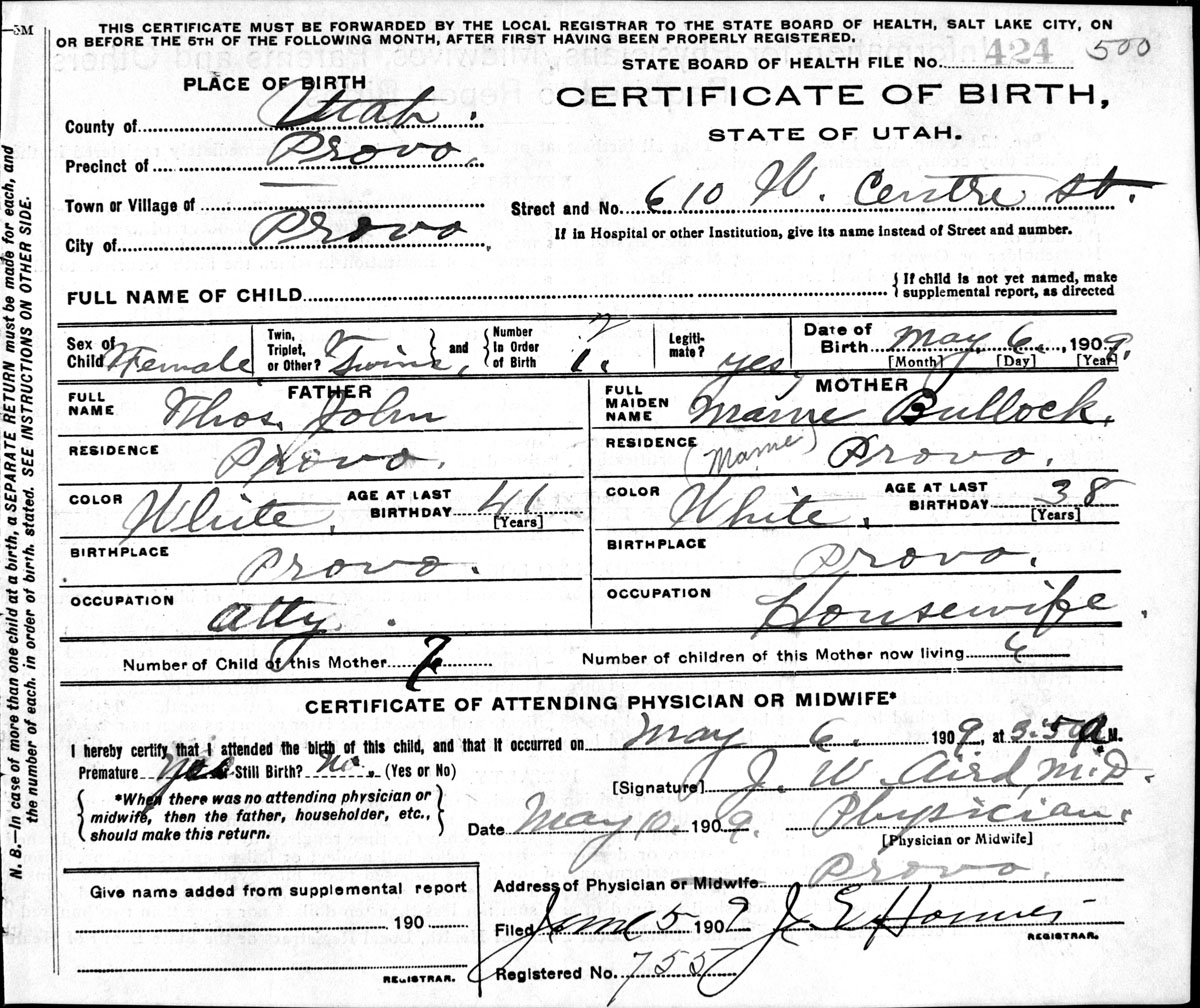 —5M
THIS CERTIFICATE MUST BE FORWARDED BY THE LOCAL REGISTRAR TO THE STATE BOARD OF HEALTH, SALT LAKE CITY, ON
OR BEFORE THE 5TH OF THE FOLLOWING MONTH, AFTER FIRST HAVING BEEN PROPERLY REGISTERED.
STATE BOARD OF HEALTH FILE NO. 424 500
PLACE OF BIRTH
CERTIFICATE OF BIRTH,
STATE OF UTAH.
County of Utah.
Precinct of Provo.
Town or Village of —
City of Provo.
Street and No. 610 W. Centre St.
If in Hospital or other Institution, give its name instead of Street and number.
FULL NAME OF CHILD
If child is not yet named, make
supplemental report, as directed
Sex of Child Female
Twin, Triplet, or Other? Twins.
and Number in Order of Birth 1.
Legitimate? yes
Date of Birth May 6., 1909.
[Month] [Day] [Year]
FATHER
FULL NAME Thos. John
RESIDENCE Provo.
COLOR White.
AGE AT LAST BIRTHDAY 41
[Years]
BIRTHPLACE Provo.
OCCUPATION Atty.
MOTHER
FULL MAIDEN NAME Mame Bullock.
RESIDENCE (Mame) Provo.
COLOR White.
AGE AT LAST BIRTHDAY 38
[Years]
BIRTHPLACE Provo.
OCCUPATION Housewife.
Number of Child of this Mother 7
Number of children of this Mother now living 6
CERTIFICATE OF ATTENDING PHYSICIAN OR MIDWIFE*
I hereby certify that I attended the birth of this child, and that it occurred on May 6. 1909, at 3:50 A M.
Premature Yes or Still Birth? No. (Yes or No)
*When there was no attending physician or
midwife, then the father, householder, etc.,
should make this return.
[Signature] J. W. Aird M.D.
Date May 10. 1909. Physician.
[Physician or Midwife]
Address of Physician or Midwife Provo.
Give name added from supplemental report
190
REGISTRAR.
Filed June 5 1909 J E
REGISTRAR.
Registered No. 755
N. B.—In case of more than one child at a birth, a SEPARATE RETURN must be made for each, and
the number of each, in order of birth, stated. SEE INSTRUCTIONS ON OTHER SIDE.